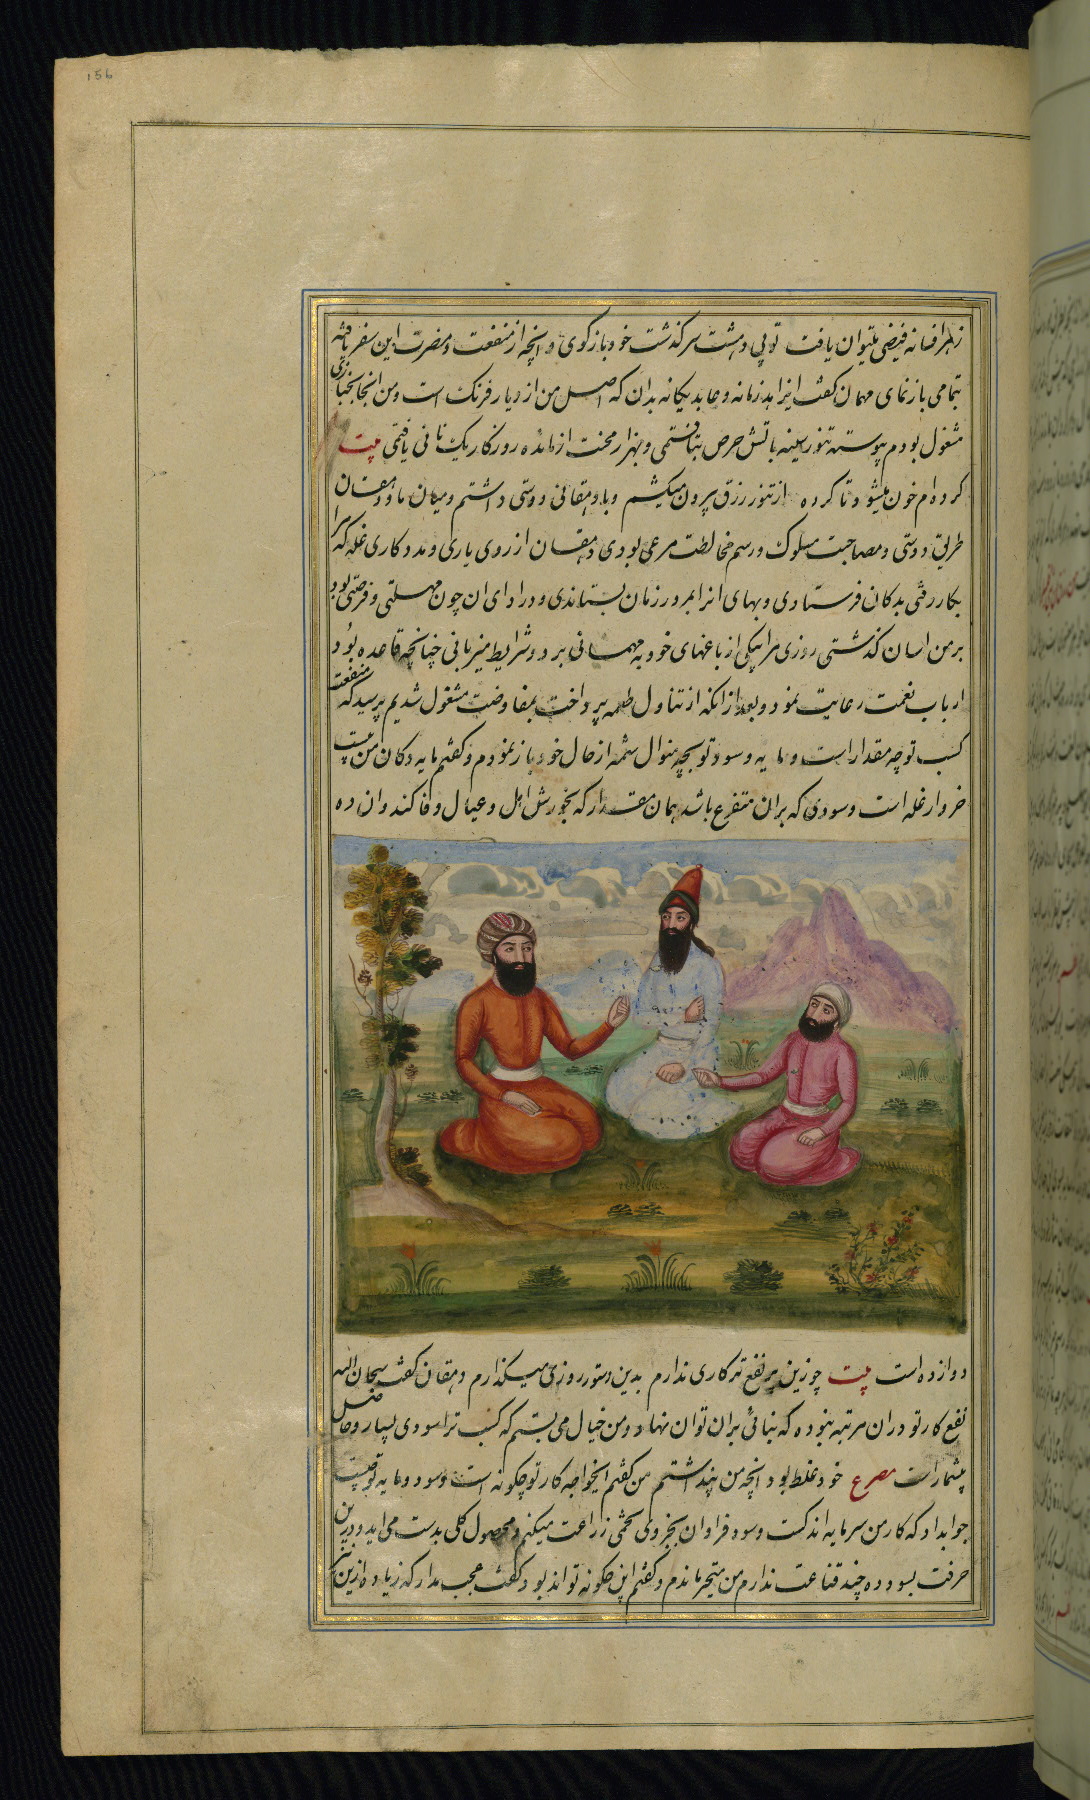 156
زهر افسانه فیضی میتوان یافت تو بی دهشت سرگذشت خود بازگوی و انچه از منفعت و مضرت این سفر یافته
بتمامی باز نمای مهمان گفت ایزاهد زمانه و عابد یگانه بدان که اصل من از دیار فرنگ است و من انجا بخبازی
مشغول بودم پیوسته تنور سینه باتش حرص بتافتمی و بهزار محنت از مائده روزگار یک نانی یافتمی بیت
گرده ام خون میشود تا گرده از تنور رزق بیرون میکشم و با دهقانی دوستی داشتم و میان ما و دهقان
طریق دوستی و مصاحبت مسلوک و رسم مخالطت مرعی بودی دهقان از روی یاری و مددکاری غله که مرا
بکار رفتی بدکان فرستادی و بهای انرا بمرور زمان بستاندی و در ادای ان چون مهلتی و فرصتی بود
بر من اسان گذشتی روزی مرا بیکی از باغهای خود به مهمانی برد و شرایط میزبانی چنانچه قاعده بود
ارباب نعمت رعایت نمود و بعد از انکه از تناول طعمه پرداخت بمفاوضت مشغول شدیم پرسید که منفعت
کسب تو چه مقدار است و مایه و سود تو بچه منوال شمه از حال خود باز نمودم و گفتم مایه دکان من بیست
خروار غله است و سودی که بران متفرع باشد همان مقدار که بخورش اهل و عیال وفا کند وان ده
دوازده است بیت چو زین پر نفع تر کاری ندارم بدین دستور روزی میگذارم دهقان گفت سبحان الله
نفع کار تو دران مرتبه نبوده که بنائی بران توان نهاد و من خیال می بستم که کسب ترا سودی بسیار و حاصل
بیشمار است مصرع خود غلط بود انچه من پنداشتم من گفتم ایخواجه کار تو چگونه است و سود و مایه تو چیست
جوابداد که کار من سرمایه اندکست و سود فراوان بجزوی تخمی زراعت میکنم و محصول کلی بدست می اید و درین
حرفت بسود ده چند قناعت ندارم من متحیر ماندم و گفتم این چگونه تواند بود گفت عجب مدار که زیاده ازین نیز